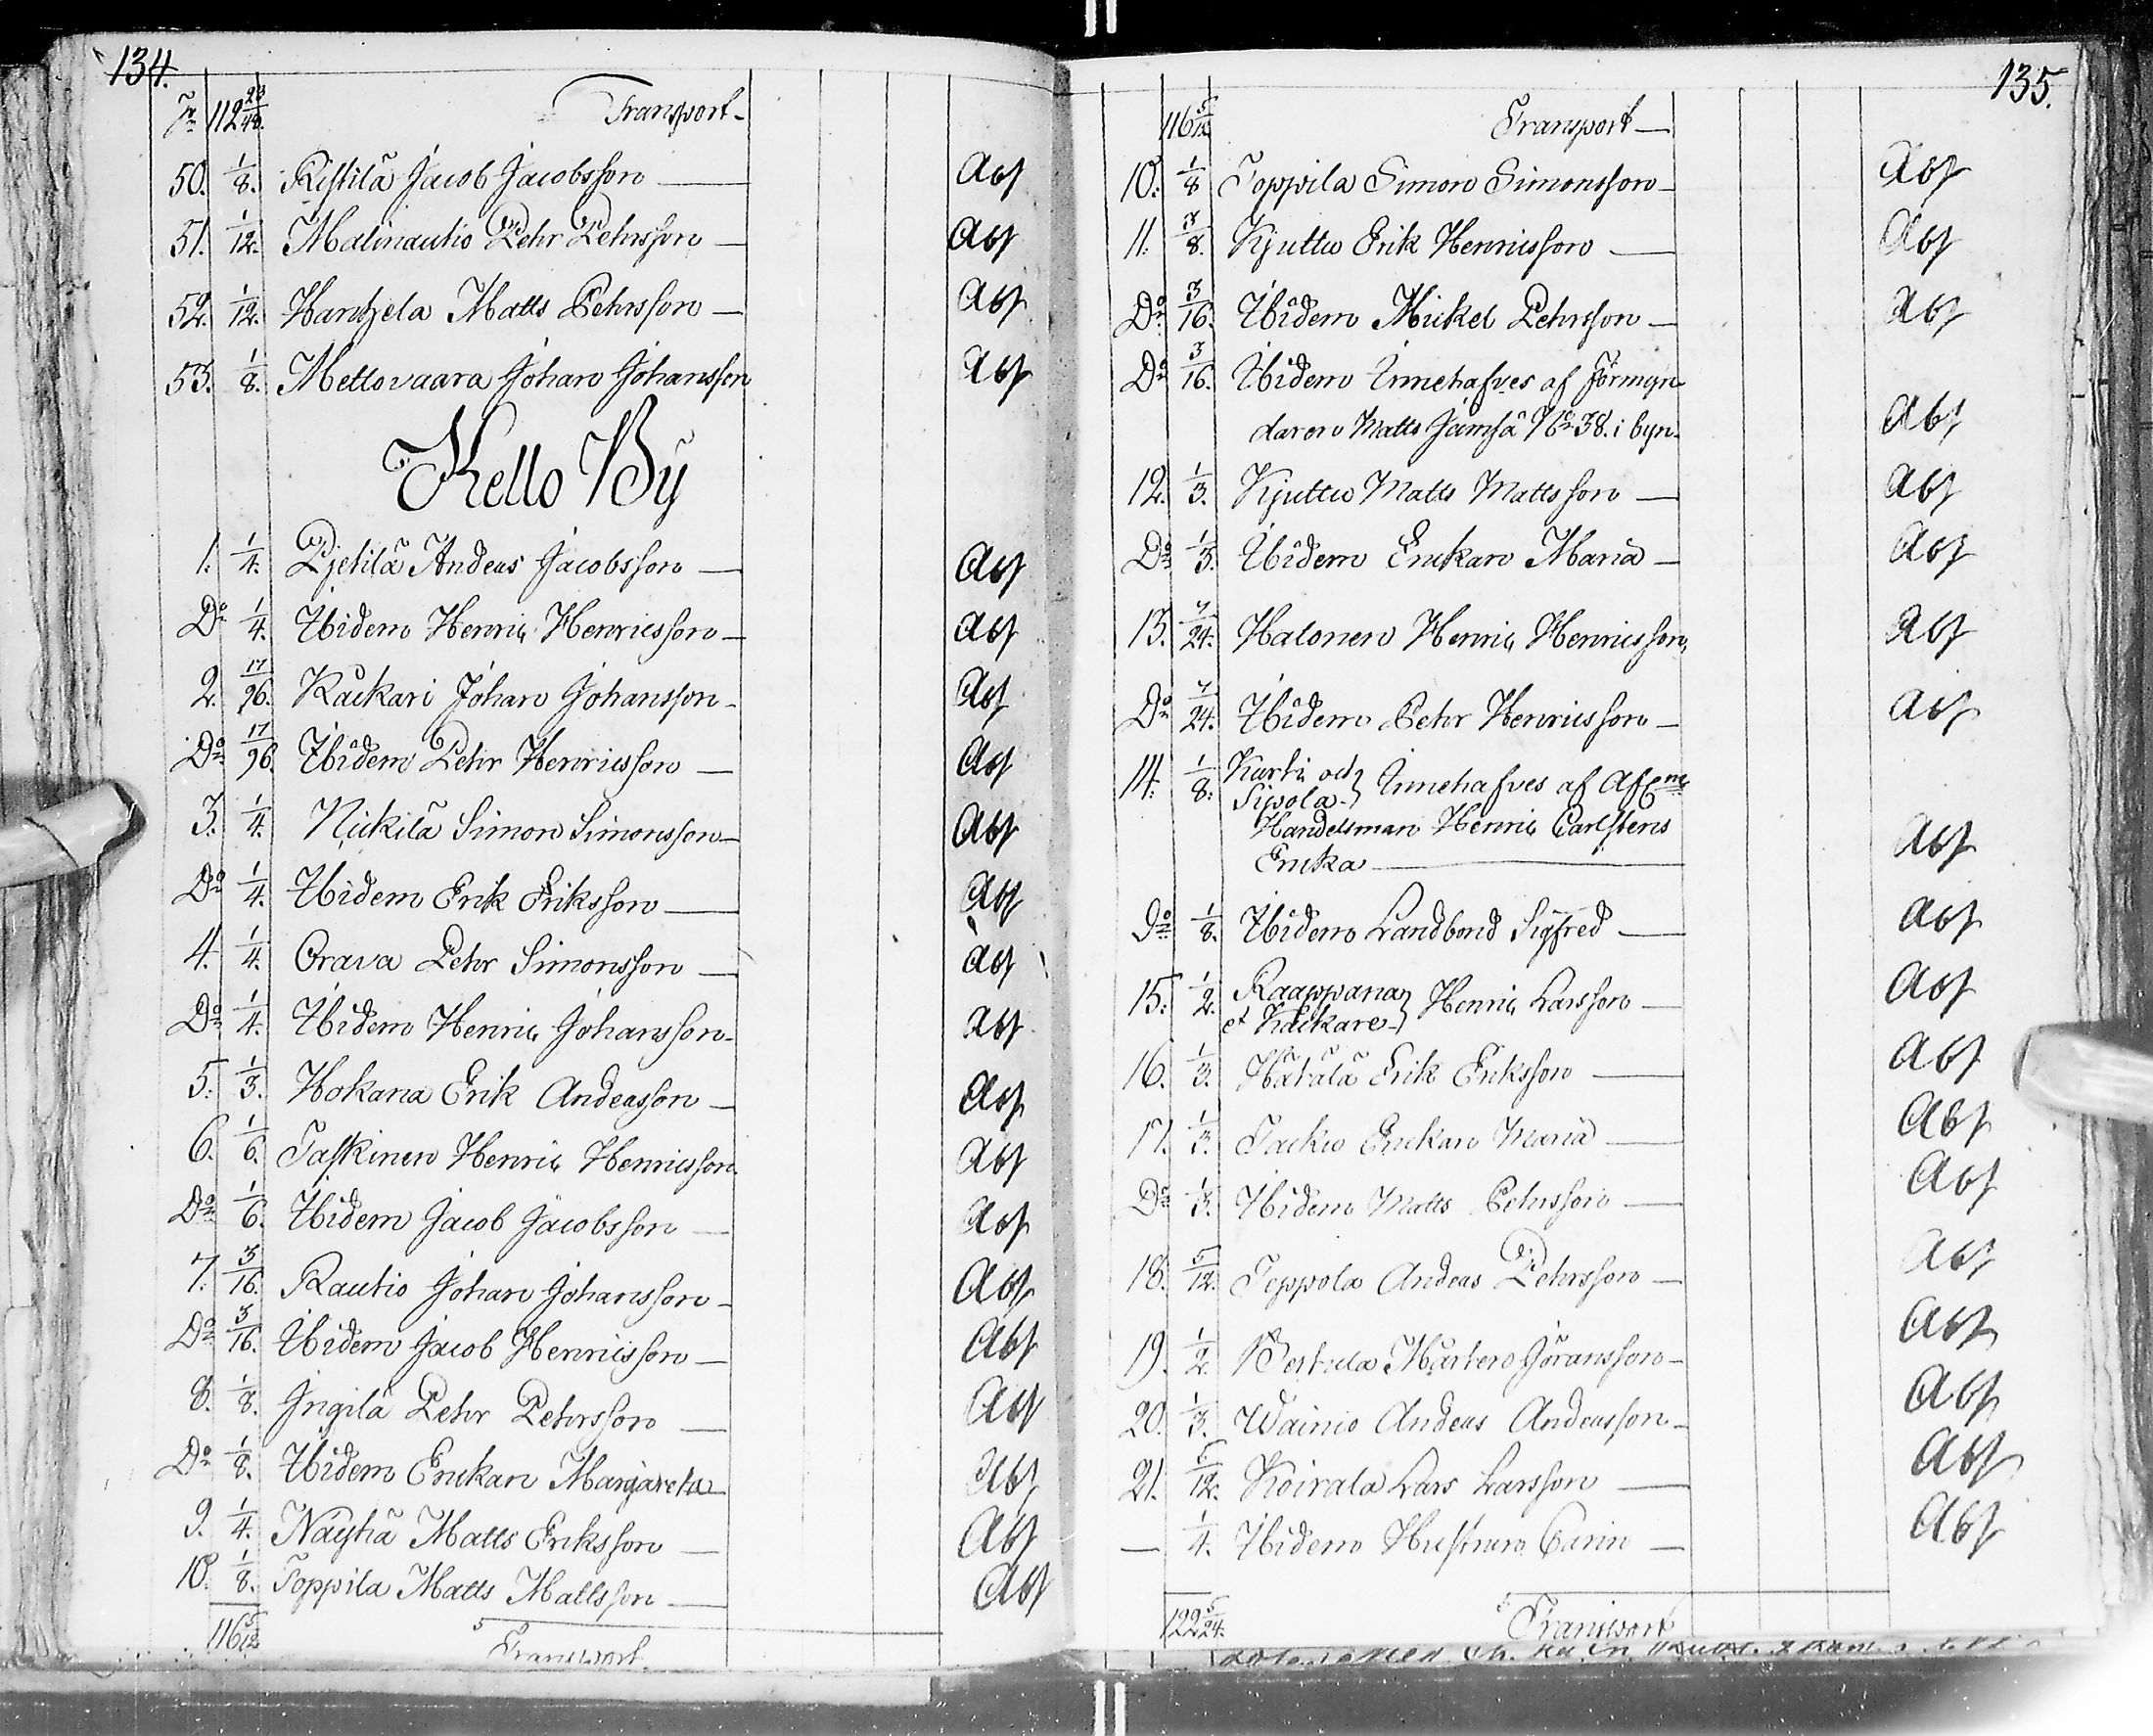 134.
Trn 112 23/48. Transport
50. 1/8. Ristilä Jacob Jacobsson — Abs
51. 1/12. Malinautio Pehr Pehrsson — Abs
52. 1/12. Hantzela Matts Pehrsson — Abs
53. 1/8. Mettovaara Johan Johansson Abs
Kello By
1. 1/4. Pjetilä Andeas Jacobsson — Abs
Do 1/4. Ibidem Henric Henricsson — Abs
2. 17/96. Käckäri Johan Johansson — Abs
Do 17/96. Ibidem Pehr Henricsson — Abs
3. 1/4. Nickilä Simon Simonsson — Abs
Do 1/4. Ibidem Erik Eriksson — Abs
4. 1/4. Orava Pehr Simonsson — Abs
Do 1/4. Ibidem Henric Johansson — Abs
5. 1/3. Hokana Erik Andeasson — Abs
6. 1/6. Taskinen Henric Henricsson Abs
Do 1/6. Ibidem Jacob Jacobsson — Abs
7. 3/16. Rautio Johan Johansson — Abs
Do 3/16. Ibidem Jacob Henricsson — Abs
8. 1/8. Ingilä Pehr Pehrsson — Abs
Do 1/8. Ibidem Enckan Margareta Abs
9. 1/4. Näyhä Matts Eriksson — Abs
10. 1/8. Toppila Matts Mattsson — Abs
116 5/12 Transport
135.
116 5/12 Transport —
10. 1/8 Toppila Simon Simonsson — Abs
11. 3/8. Kjuttu Erik Henricsson — Abs
Do 3/16. Ibidem Mickel Pehrsson — Abs
Do 3/16. Ibidem Innehafves af Förmyn
daren Matts Jämsä No 38. i byn. Abs
12. 1/3. Kjuttu Matts Mattsson — Abs
Do 1/3. Ibidem Enckan Maria — Abs
13. 7/24. Halonen Henric Henricsson Abs
Do 7/24. Ibidem Pehr Henricsson — Abs
14. 1/8. Kurki och Sipola } Innehafves af Afl:ne
Handelsman Henric Carlstens
Encka — Abs
Do 1/8. Ibidem Landbond Sigfred — Abs
15. 1/2. Raappana et Käckäre } Henric Larsson — Abs
16. 1/3. Härälä Erik Eriksson — Abs
17. 1/3. Jacku Enckan Maria — Abs
Do 1/3. Ibidem Matts Pehrsson — Abs
18. 5/12. Teppola Andeas Pehrsson — Abs
19. 1/2. Bertula Mårten Göransson — Abs
20. 1/3. Wainio Andeas Andeasson — Abs
21. 5/12. Koirala Lars Larsson — Abs
— 1/4. Ibidem Hustrun Carin — Abs
122 5/24. Transport